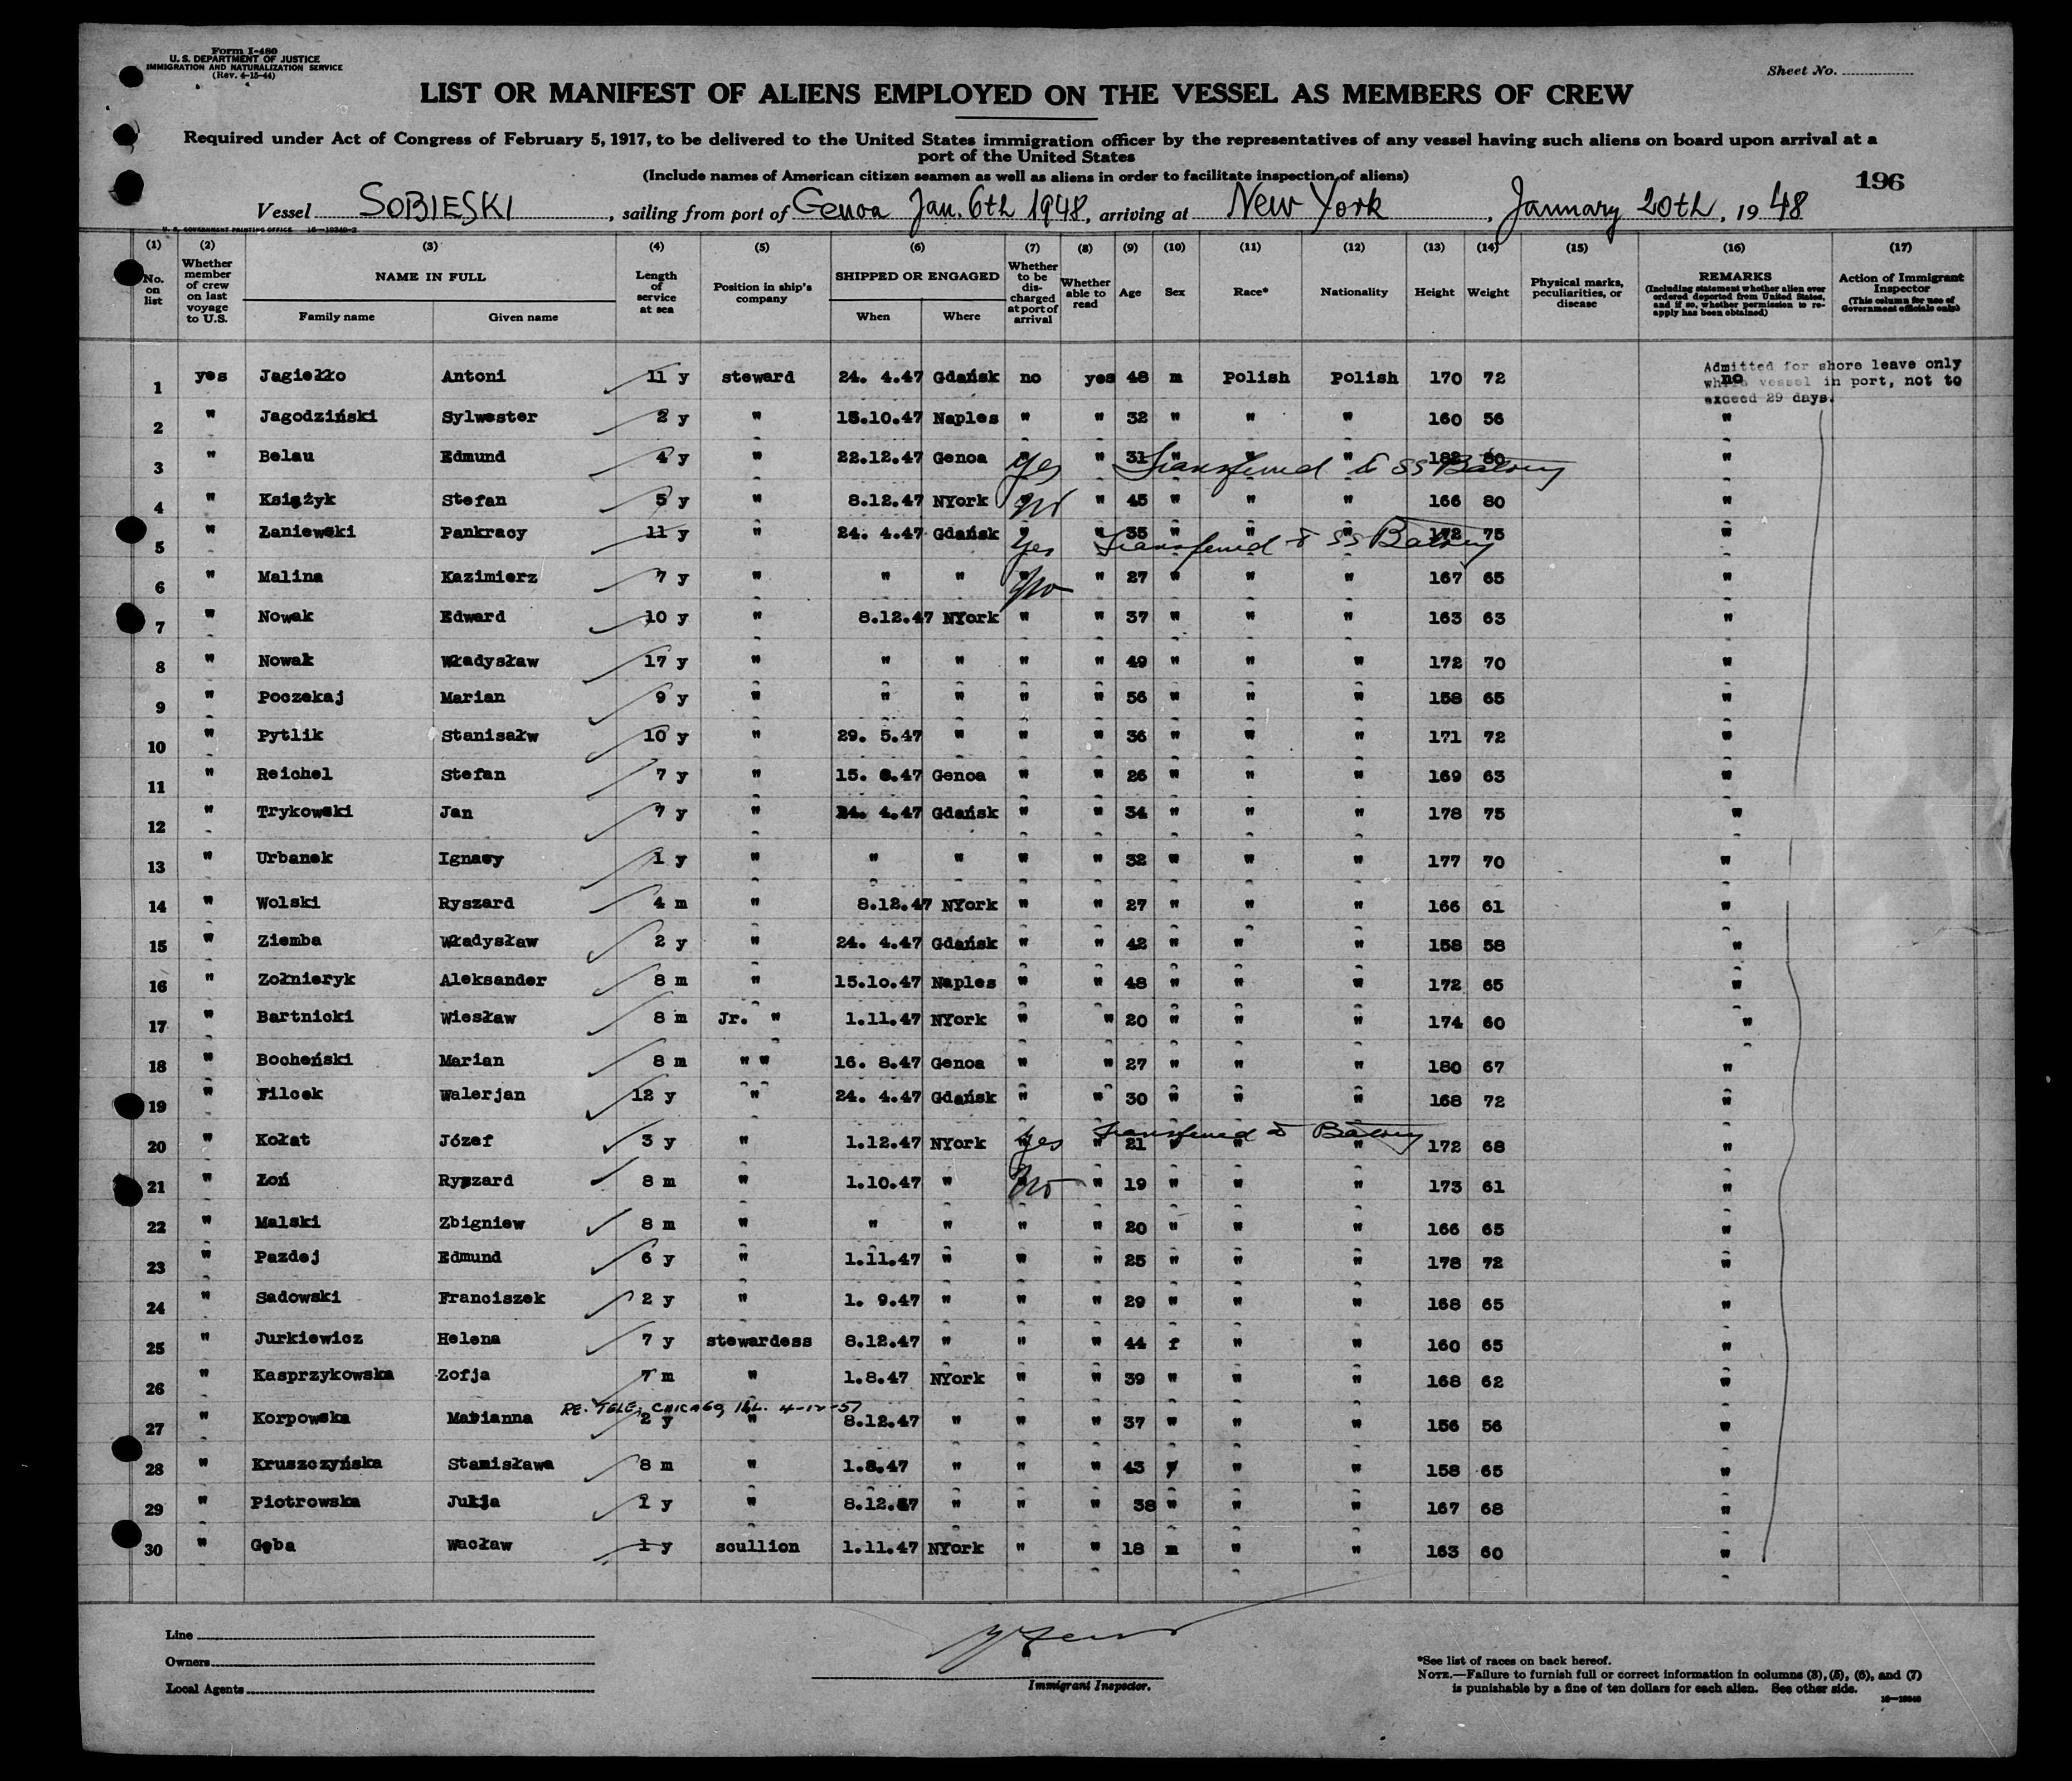 Form I-480
U. S. DEPARTMENT OF JUSTICE
IMMIGRATION AND NATURALIZATION SERVICE
(Rev. 4-15-44)
Sheet No.
LIST OR MANIFEST OF ALIENS EMPLOYED ON THE VESSEL AS MEMBERS OF CREW
Required under Act of Congress of February 5, 1917, to be delivered to the United States immigration officer by the representatives of any vessel having such aliens on board upon arrival at a
port of the United States
(Include names of American citizen seamen as well as aliens in order to facilitate inspection of aliens)
196
Vessel SOBIESKI, sailing from port of Genoa Jan. 6th 1948, arriving at New York, January 20th, 1948
U. S. GOVERNMENT PRINTING OFFICE 16—19340-2
(1) (2) (3) (4) (5) (6) (7) (8) (9) (10) (11) (12) (13) (14) (15) (16) (17)
No. on list Whether member of crew on last voyage to U.S. NAME IN FULL Family name Given name Length of service at sea Position in ship's company SHIPPED OR ENGAGED When Where Whether to be discharged at port of arrival Whether able to read Age Sex Race* Nationality Height Weight Physical marks, peculiarities, or disease REMARKS (Including statement whether alien ever ordered deported from United States, and if so, whether permission to reapply has been obtained) Action of Immigrant Inspector (This column for use of Government officials only)
Admitted for shore leave only
while vessel in port, not to
exceed 29 days.
1 yes Jagiełło Antoni 11 y steward 24. 4.47 Gdańsk no yes 48 m Polish Polish 170 72 no
2 " Jagodziński Sylwester 2 y " 15.10.47 Naples " " 32 " " " 160 56 "
3 " Belau Edmund 4 y " 22.12.47 Genoa " Yes " 31 " " " 182 80 " Transferred to SS Batory
4 " Książyk Stefan 5 y " 8.12.47 NYork " No " 45 " " " 166 80 "
5 " Łaniewski Pankracy 11 y " 24. 4.47 Gdańsk " Yes " 35 " " " 172 75 " Transferred to SS Batory
6 " Malina Kazimierz 7 y " " " " No " 27 " " " 167 65 "
7 " Nowak Edward 10 y " 8.12.47 NYork " " 37 " " " 163 63 "
8 " Nowak Władysław 17 y " " " " " 49 " " " 172 70 "
9 " Poczekaj Marian 9 y " " " " " 56 " " " 158 65 "
10 " Pytlik Stanisałw 10 y " 29. 5.47 " " " 36 " " " 171 72 "
11 " Reichel Stefan 7 y " 15. 6.47 Genoa " " 26 " " " 169 63 "
12 " Trykowski Jan 7 y " 24. 4.47 Gdańsk " " 34 " " " 178 75 "
13 " Urbanek Ignacy 1 y " " " " " 32 " " " 177 70 "
14 " Wolski Ryszard 4 m " 8.12.47 NYork " " 27 " " " 166 61 "
15 " Ziemba Władysław 2 y " 24. 4.47 Gdańsk " " 42 " " " 158 58 "
16 " Zołnieryk Aleksander 8 m " 15.10.47 Naples " " 48 " " " 172 65 "
17 " Bartnicki Wiesław 8 m Jr. " 1.11.47 NYork " " 20 " " " 174 60 "
18 " Bocheński Marian 8 m " " 16. 8.47 Genoa " " 27 " " " 180 67 "
19 " Filcek Walerjan 12 y " 24. 4.47 Gdańsk " " 30 " " " 168 72 "
20 " Kołat Józef 3 y " 1.12.47 NYork " Yes " 21 " " " 172 68 " Transferred to Batory
21 " Łoń Ryszard 8 m " 1.10.47 " " No " 19 " " " 173 61 "
22 " Malski Zbigniew 8 m " " " " " 20 " " " 166 65 "
23 " Pazdej Edmund 6 y " 1.11.47 " " " 25 " " " 178 72 "
24 " Sadowski Franciszek 2 y " 1. 9.47 " " " 29 " " " 168 65 "
25 " Jurkiewicz Helena 7 y stewardess 8.12.47 " " " 44 f " " 160 65 "
26 " Kasprzykowska Zofja 7 m " 1.8.47 NYork " " 39 " " " 168 62 "
RE. TELE, CHICAGO, ILL. 4-12-57
27 " Korpowska Marianna 2 y " 8.12.47 " " " 37 " " " 156 56 "
28 " Kruszczyńska Stanisława 8 m " 1.8.47 " " " 43 " " " 158 65 "
29 " Piotrowska Julja 1 y " 8.12.47 " " " 38 " " " 167 68 "
30 " Gęba Wacław 1 y scullion 1.11.47 NYork " " 18 m " " 163 60 "
Line
Owners
Local Agents
Immigrant Inspector.
*See list of races on back hereof.
NOTE.—Failure to furnish full or correct information in columns (3), (5), (6), and (7)
is punishable by a fine of ten dollars for each alien. See other side.